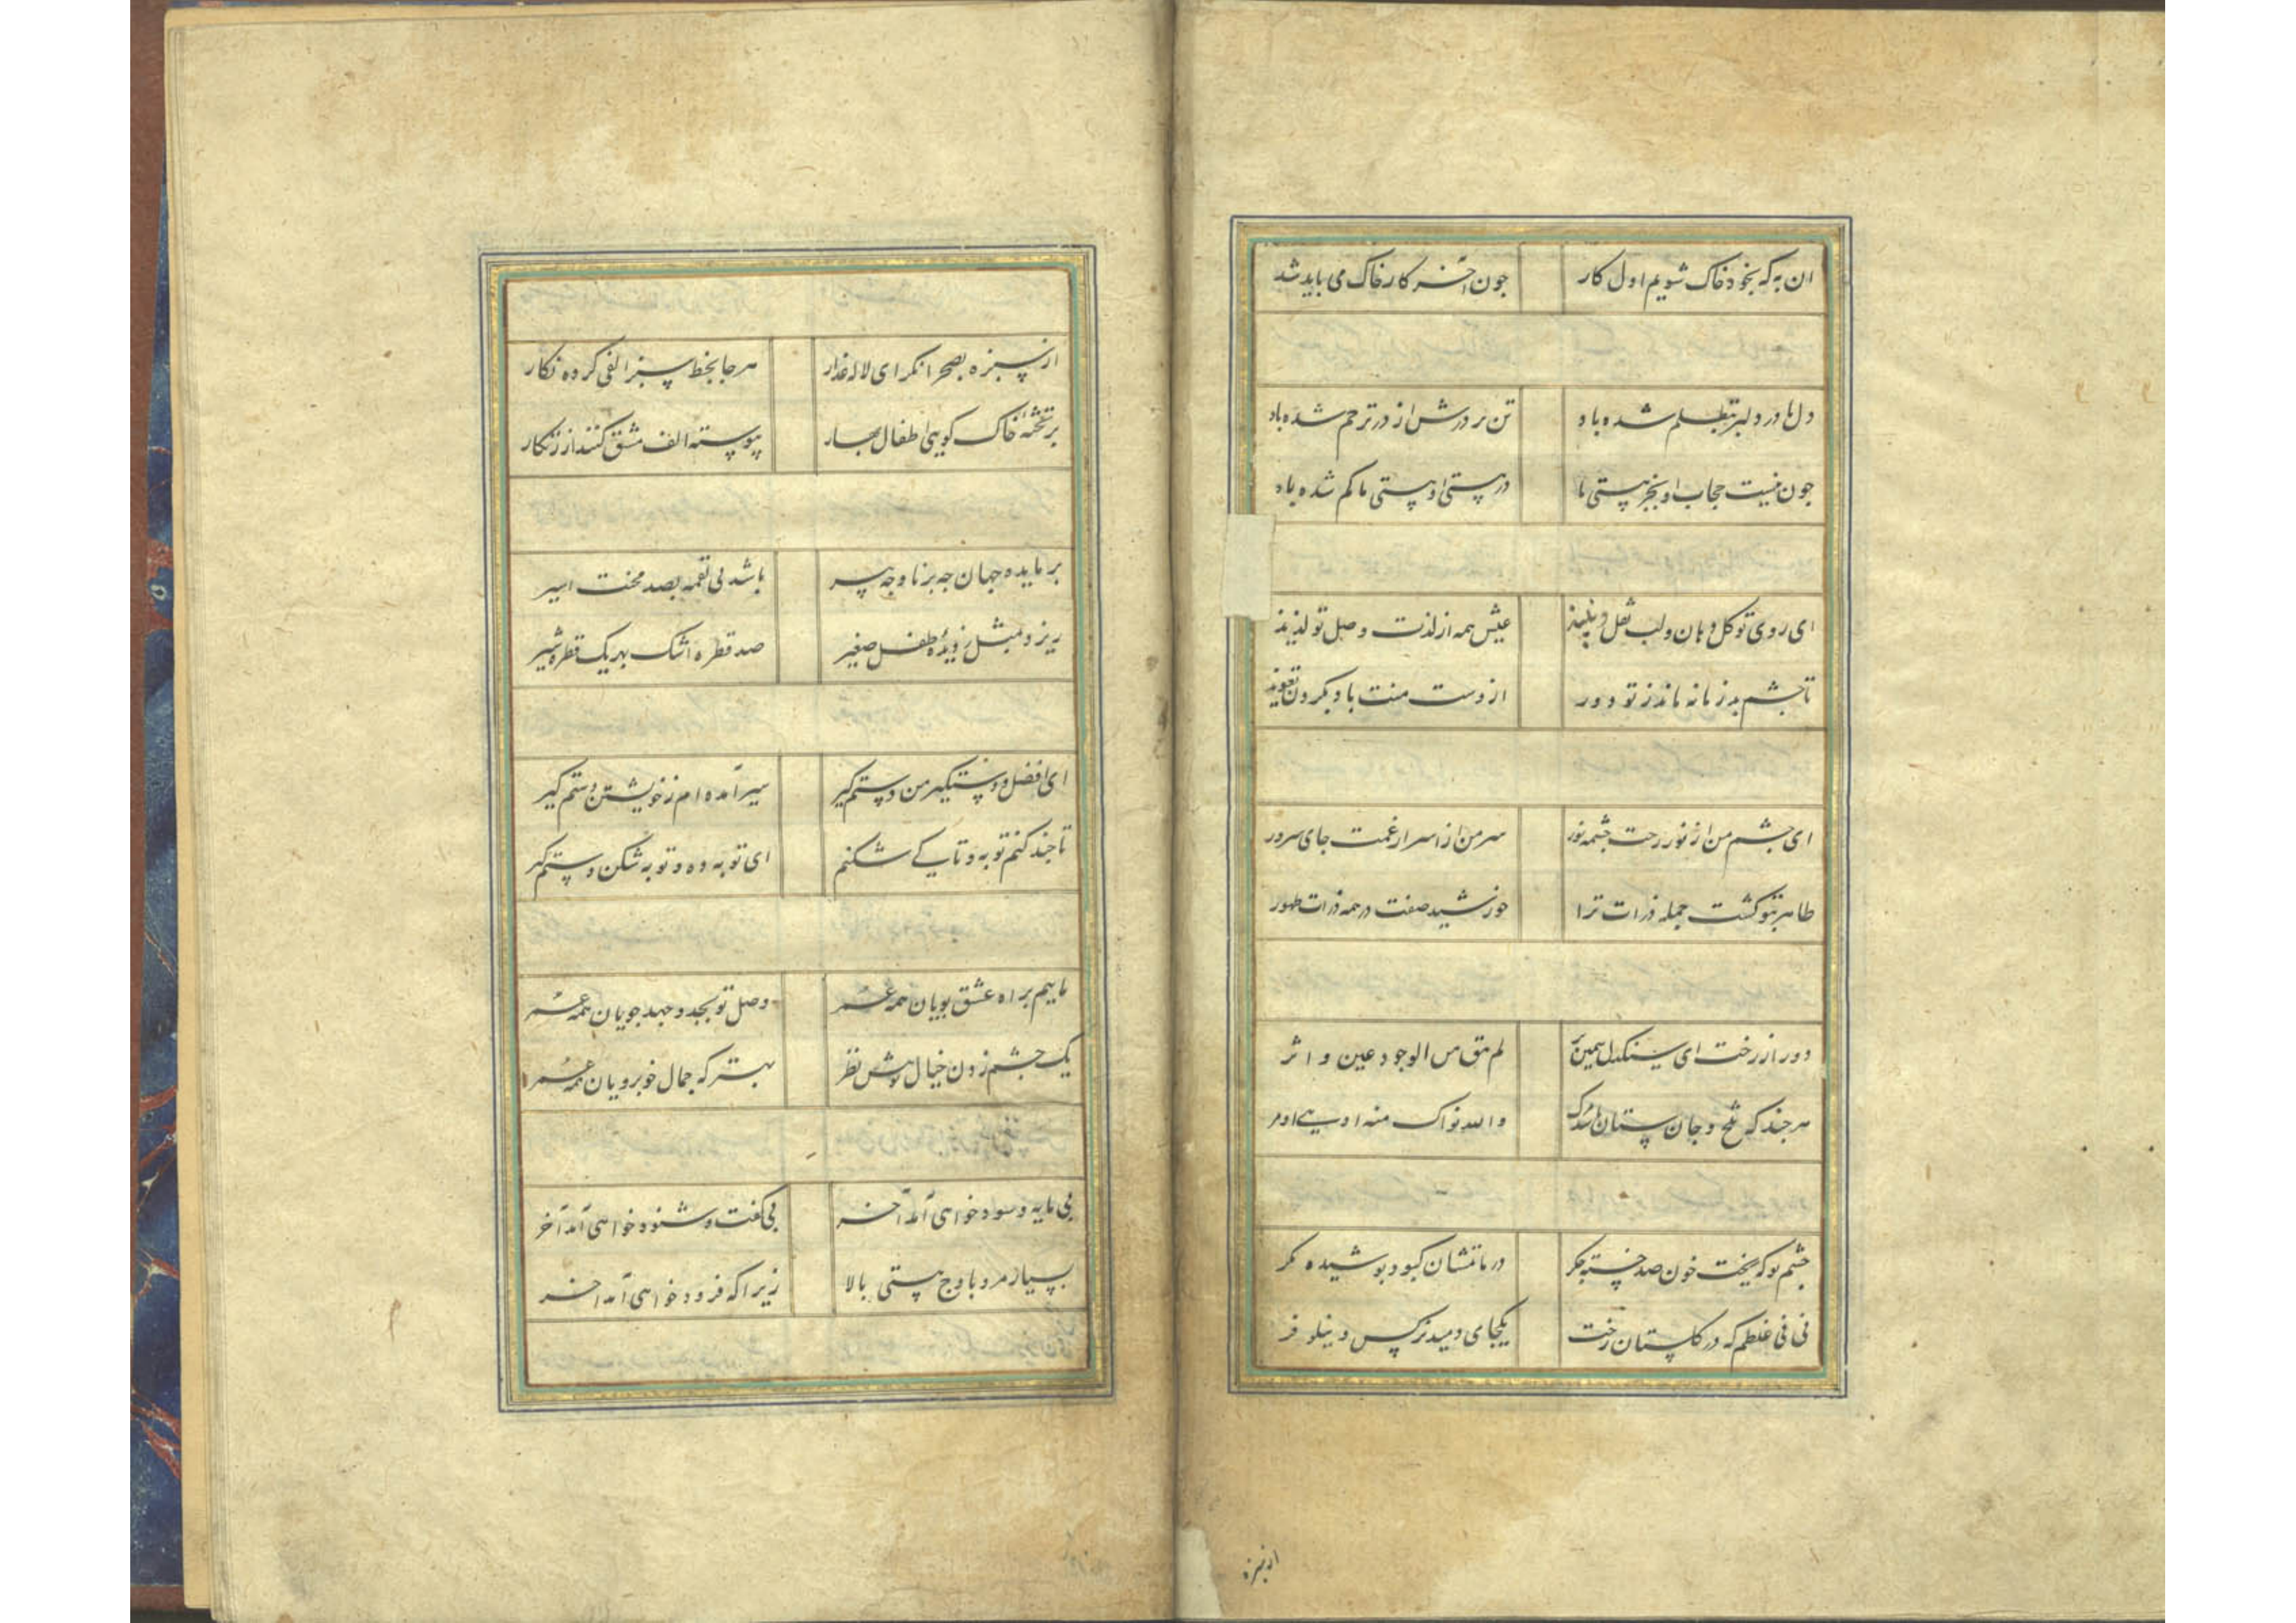 ان به که بخود خاک شویم اول کار جون آخر کار خاک می باید شد
دل با در دلبر بتظلم شده باد تن بر درش از در ترحم شده باد
جون نیست حجاب او بجز هستی ما در هستی او هستی ما کم شده باد
ای روی تو کل دهان ولب نقل و نبیذ عیش همه از لذت وصل تو لذیذ
تا جشم بد زمانه ماند ز تو دور از دست منت باد بکردن تعویذ
ای جشم من از نور رخت جشمه نور سر من از اسرار غمت جای سرور
ظاهر بتو کشت جمله ذرات ترا خورشید صفت در همه ذرات ظهور
دور از رخت ای سنکدل سیمین بر لم تبق من الوجود عین و اثر
هر جند که شخ و جان ستان والله نواک منه ادهی و امر
جشم تو که ریخت خون صد خسته جکر در ماتمشان کبود بوشیده مکر
نی نی غلطم که در کلستان رخت یکجای دمید نرکس و نیلوفر
از سبزه
از سبزه بصحرا نکر ای لاله عذار هر جا بخط سبز الفی کرده نکار
بر تخته خاک کویی اطفال بهار پیوسته الف مشق کنند از زنکار
بر مایده جهان جه برنا و جه پیر باشد پی لقمه بصد محنت اسیر
ریزد بمثل ز دیده طفل صغیر صد قطره اشک بهر یک قطره شیر
ای افضل و دستکیر من دستم کیر سیر آمده ام ز خویشتن دستم کیر
تا جند کنم توبه و تا کی شکنم ای توبه ده و توبه شکن دستم کیر
ماییم براه عشق پویان همه عمر وصل تو بجد و جهد جویان همه عمر
یک جشم زدن خیال تو پیش نظر بهتر که جمال خوبرویان همه عمر
بی مایه و سود خواهی آمد آخر بی کفت و شنود خواهی آمد آخر
بسیار مرو باوج هستی بالا زیرا که فرود خواهی آمد اخر